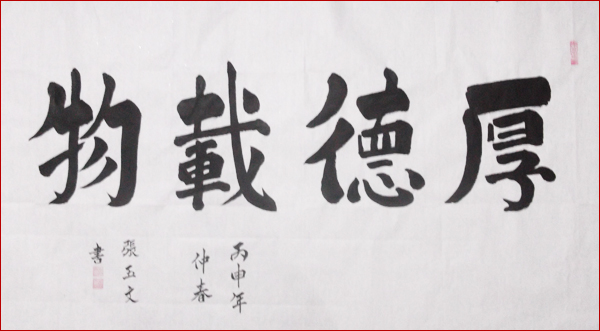 厚德載物
丙申年
仲春
張玉文
書